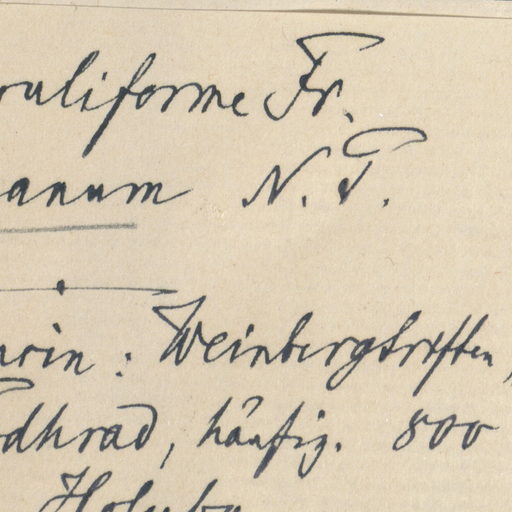 ruliforme Fr.
anum N. P.
rin : Weinbergtriften,
dhrad, häufig. 800
Holuby